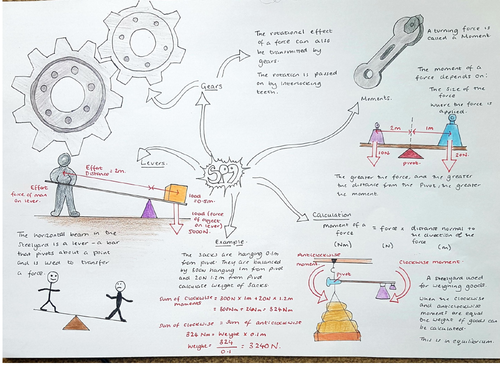 The rotational effect
of a force can also
be transmitted by
gears.
The rotation is passed
on by interlocking
teeth.
Gears
A turning force is
called a Moment
Moments.
The moment of a
force depends on:
The size of the
force
where the force is
applied.
2m
1m
10N
20N
pivot
The greater the force, and the greater
the distance from the pivot, the greater
the moment.
Levers.
Effort
Distance = 2m
Effort
force of man
on lever.
load
load (force of
object on lever)
The horizontal beam in
the Steelyard is a lever - a bar
that pivots about a point
and is used to transfer
a force.
SP9
Calculation
moment of a = force x distance normal to
force the direction of the
force
(Nm) (N) (m)
Example:
The sacks are hanging 0.1m
from pivot. They are balanced
by 300N hanging 1m from pivot
and 20N 1.2m from pivot
calculate weight of sacks.
Sum of clockwise = 300N x 1m + 20N x 1.2m
moments
= 300Nm + 24Nm = 324Nm
Sum of clockwise = Sum of anticlockwise
324Nm = Weight x 0.1m
Weight = 324
0.1
= 3240N.
Anticlockwise
moment.
Clockwise moment.
pivot
A steelyard used
for weighing goods.
When the clockwise
and anticlockwise
moment are equal
the weight of goods can
be calculated.
This is in equilibrium.